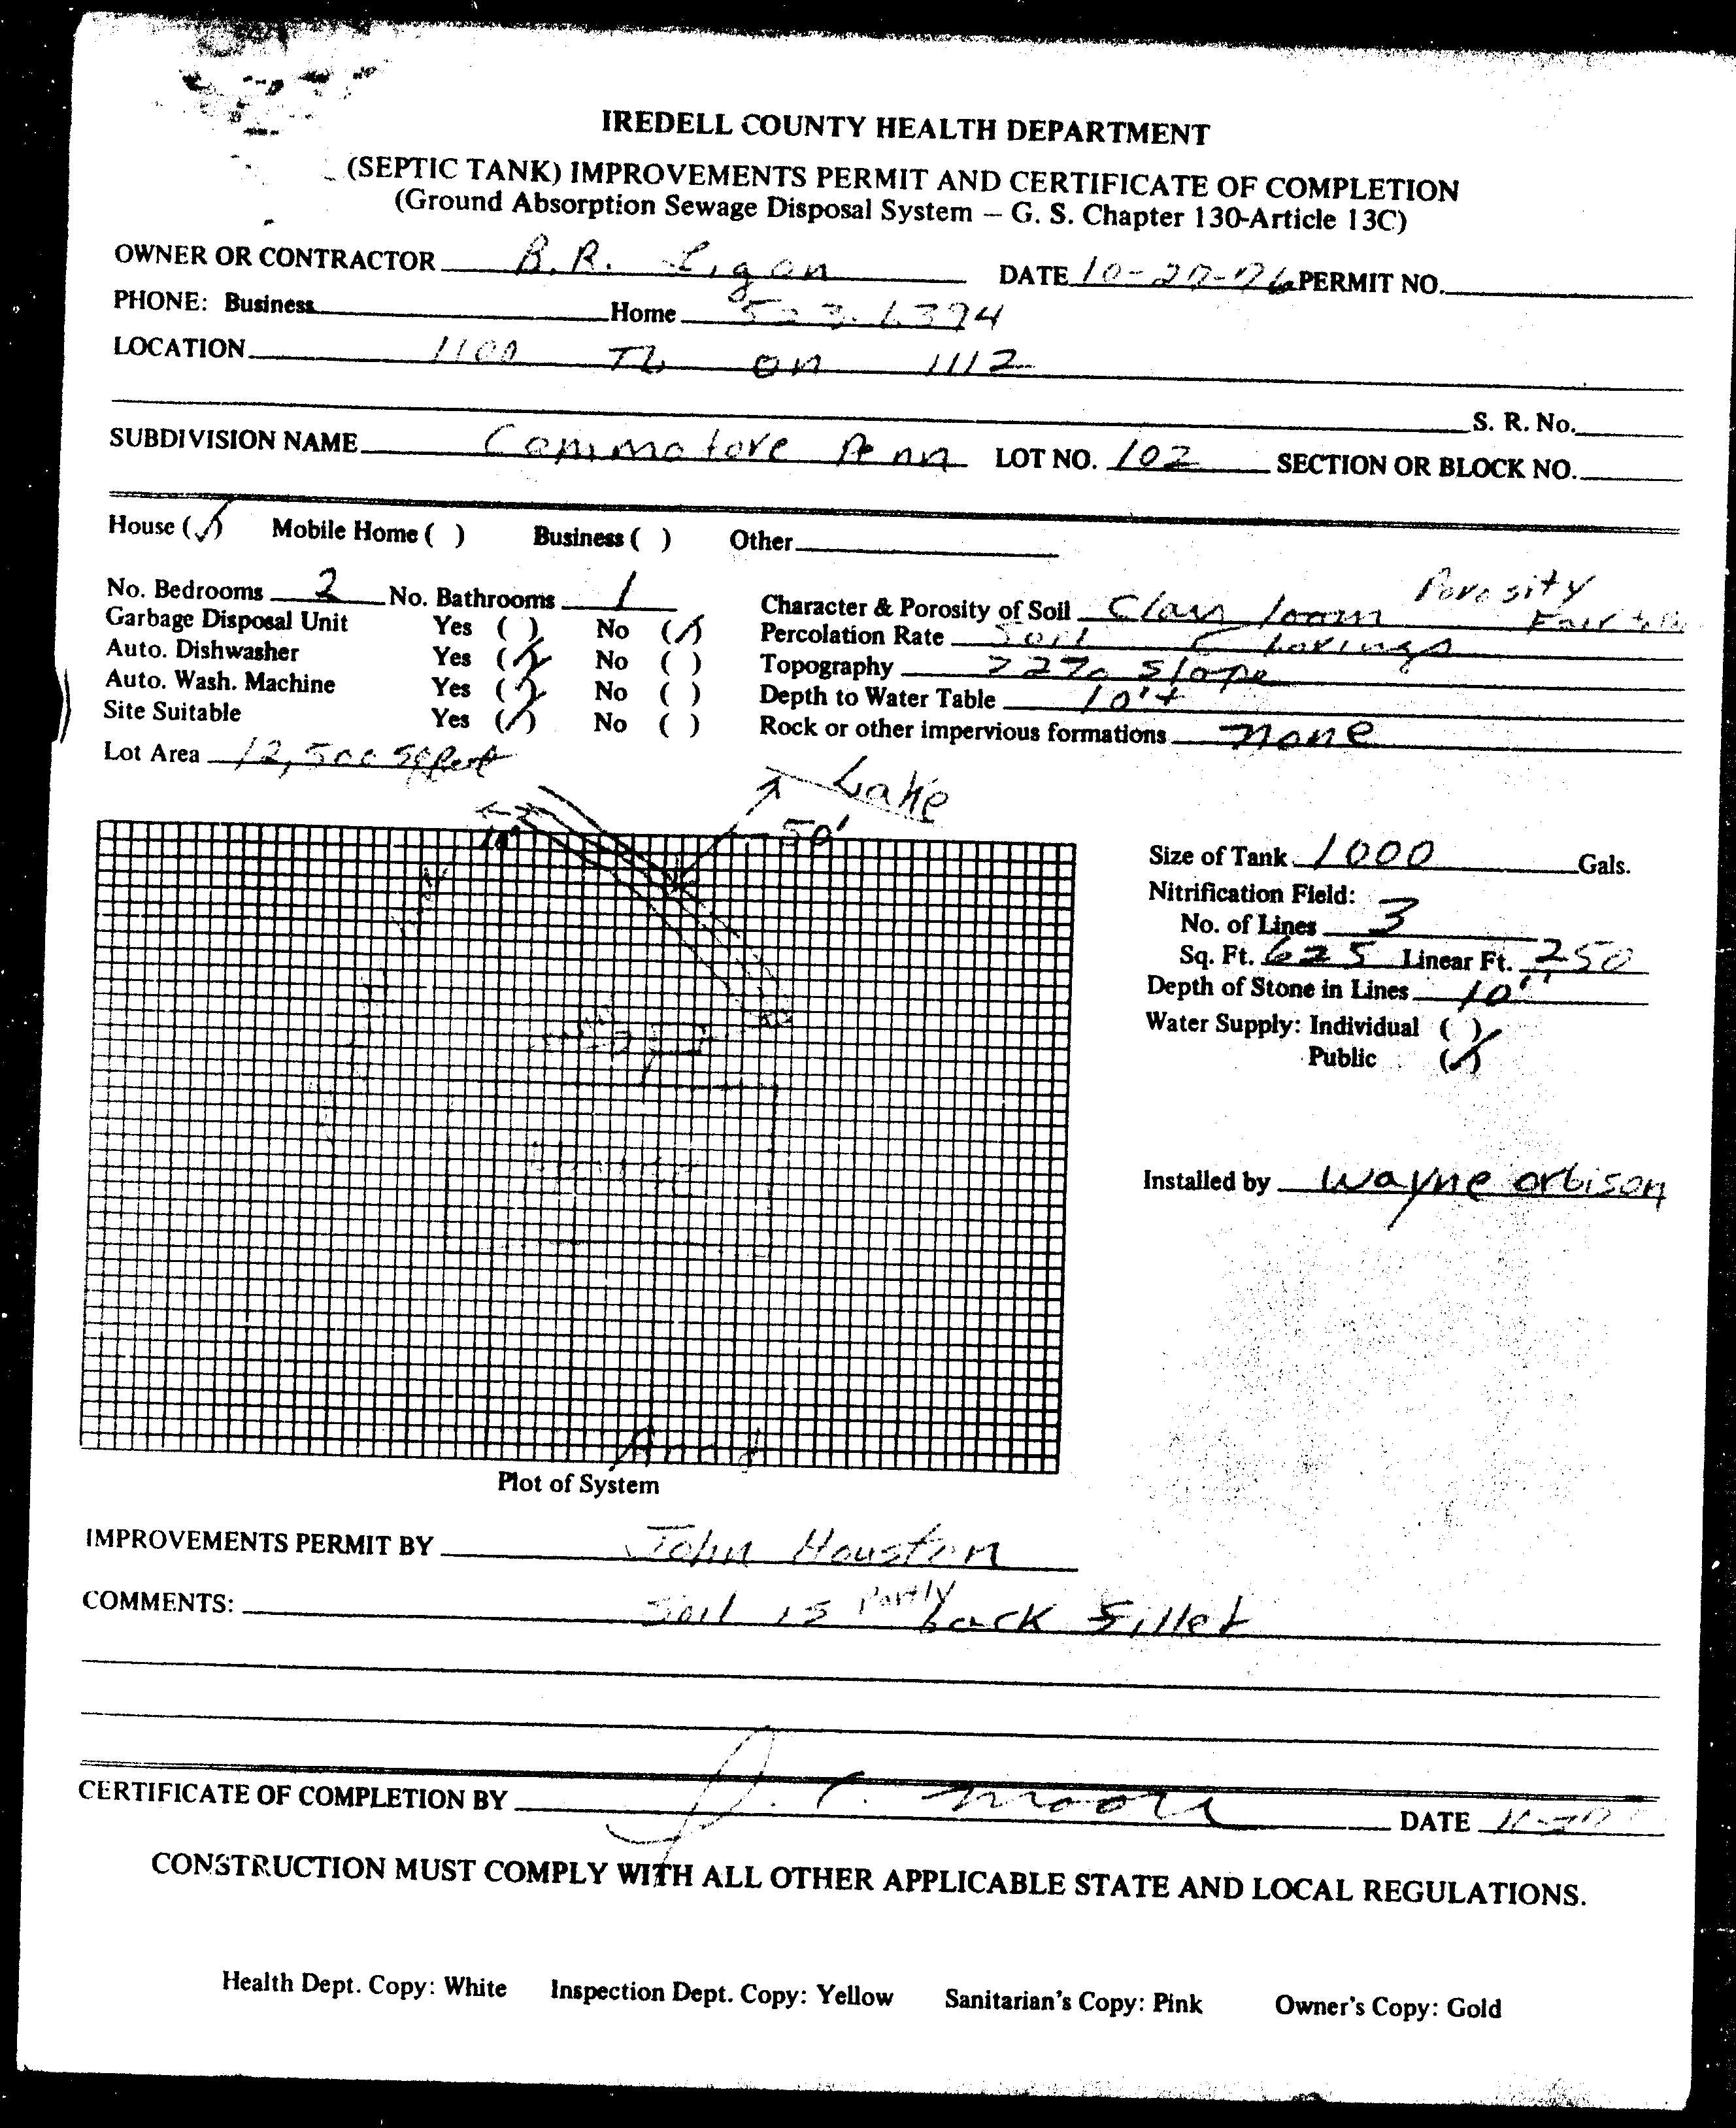 IREDELL COUNTY HEALTH DEPARTMENT
(SEPTIC TANK) IMPROVEMENTS PERMIT AND CERTIFICATE OF COMPLETION
(Ground Absorption Sewage Disposal System – G. S. Chapter 130-Article 13C)
OWNER OR CONTRACTOR B.R. Ligon DATE 10-27-76 PERMIT NO.
PHONE: Business Home
LOCATION 1100 TL on 1112
S. R. No.
SUBDIVISION NAME Commatore Penn LOT NO. 102 SECTION OR BLOCK NO.
House (✓) Mobile Home ( ) Business ( ) Other
No. Bedrooms 2 No. Bathrooms 1
Garbage Disposal Unit Yes ( ) No (✓)
Auto. Dishwasher Yes (✓) No ( )
Auto. Wash. Machine Yes (✓) No ( )
Site Suitable Yes (✓) No ( )
Lot Area 12,500 sqfeet
Porosity
Character & Porosity of Soil Clay loam Fair
Percolation Rate Soil borings
Topography 22% Slope
Depth to Water Table 10'+
Rock or other impervious formations none
Lake
10'
50'
Size of Tank 1000 Gals.
Nitrification Field:
No. of Lines 3
Sq. Ft. 625 Linear Ft. 250
Depth of Stone in Lines 10"
Water Supply: Individual ( )
Public (✓)
Installed by Wayne orbison
Plot of System
IMPROVEMENTS PERMIT BY John Houston
COMMENTS: Soil is Partly back fillet
CERTIFICATE OF COMPLETION BY J. C. Moore DATE
CONSTRUCTION MUST COMPLY WITH ALL OTHER APPLICABLE STATE AND LOCAL REGULATIONS.
Health Dept. Copy: White Inspection Dept. Copy: Yellow Sanitarian's Copy: Pink Owner's Copy: Gold